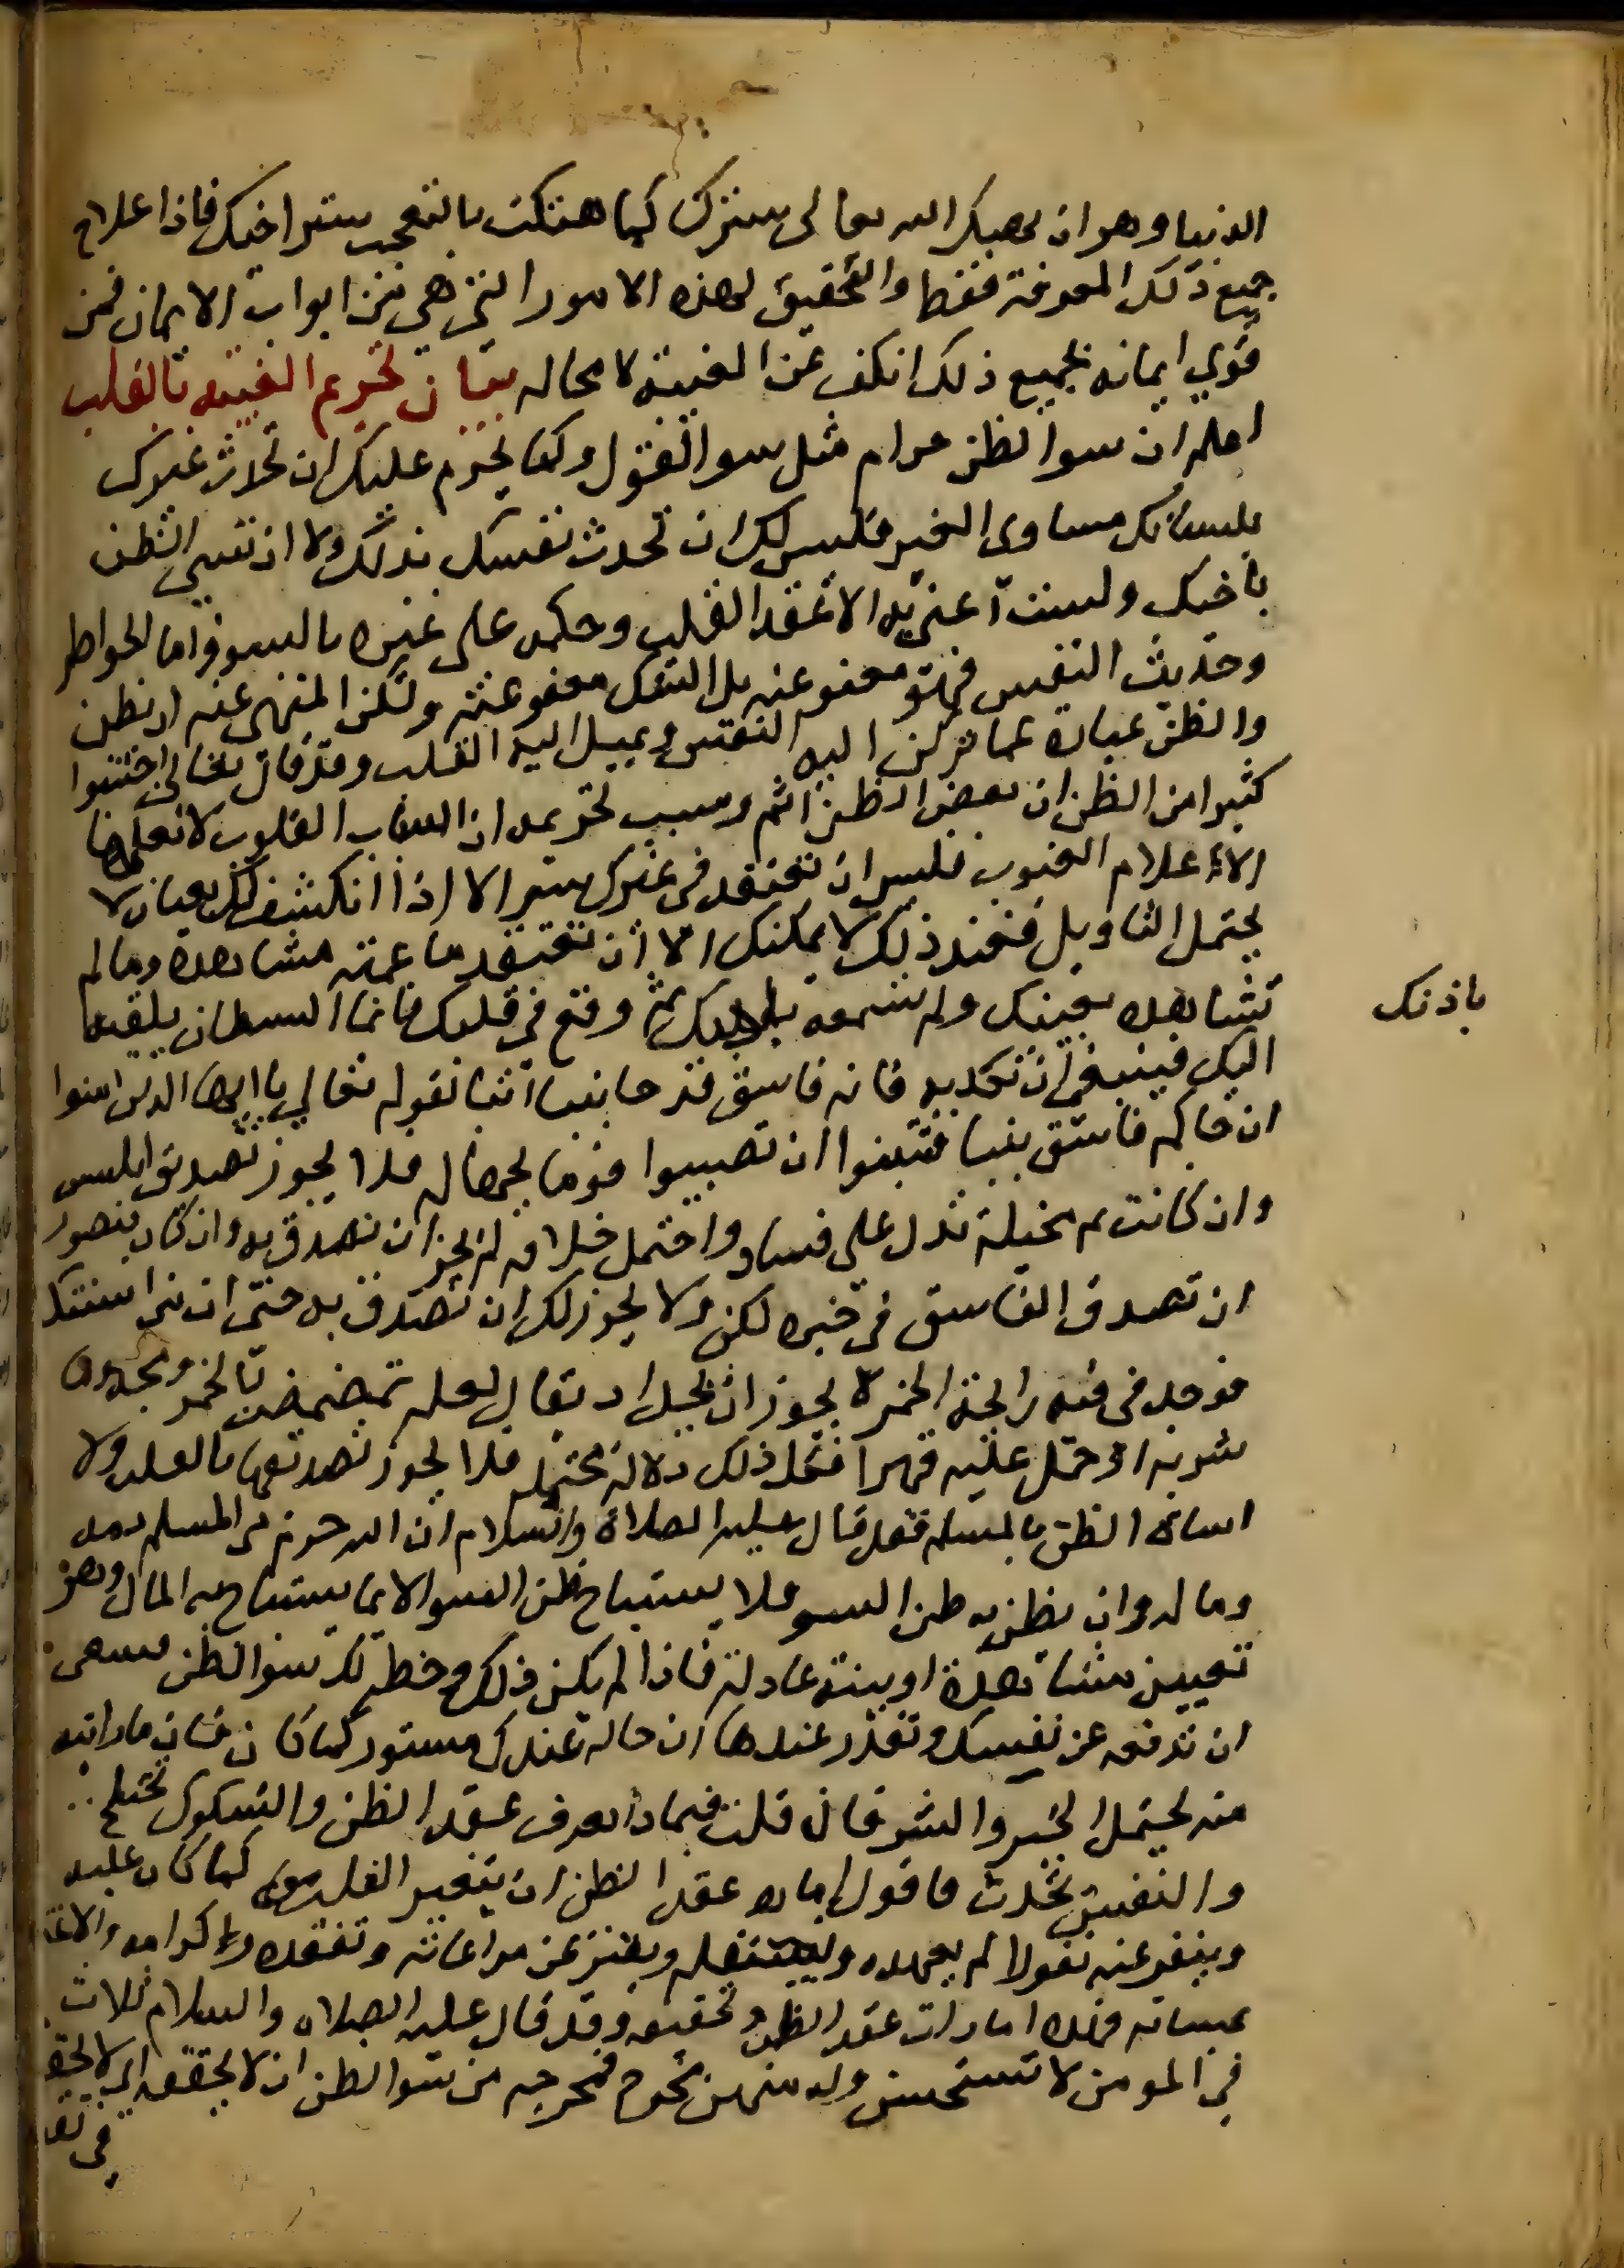 الدنيا وهو ان يهتك الله تعالى سترك كما هتكت بالتعجب ستر اخيك فاذا علاج
جميع ذلك المعرفة فقط والتحقيق لهذه الامور التي هي من ابواب الايمان فمن
قوي ايمانه بجميع ذلك انكف عن الغيبة لا محاله بيان تحريم الغيبه بالقلب
اعلم ان سوا لظن حرام مثل سوا القول وكما يحرم عليك ان تحدث غيرك
بلسانك مساوي الغير فليس لك ان تحدث نفسك بذلك ولا ان تسي الظن
باخيك ولست اعني به الا عقد القلب وحكمه على غيره بالسو فاما الخواطر
وحديث النفس فهو معفو عنه بل الشك معفو عنه ولكن المنهى عنه ان يظن
والظن عبارة عما تركن اليه النفس ويميل اليه القلب وقد قال تعالى اجتنبوا
كثيرا من الظن ان بعض الظن اثم وسبب تحريمه ان اسرار القلوب لا يعلمها
الا علام الغيوب فليس ان تعتقد في غيرك سوا الا اذا انكشف لك بعيان لا
يحتمل التاويل فعند ذلك لا يمكنك الا ان تعتقد ما علمته مشاهدة وما لم
تشاهده بعينك ولم تسمعه ثم وقع في قلبك فانما الشيطان يلقيه
باذنك
اليك فينبغي ان تكذبه فانه فاسق قد جا بنبا لقوله تعالي يا ايها الذين امنوا
ان جاكم فاسق بنبا فتبينوا ان تصيبوا قوما بجهاله فلا يجوز تصديق ابليس
وان كانت ثم مخيلة تدل على فساد واحتمل خلافه لم يجز ان تصدق به وان كان يتصور
ان تصدق الفاسق في خبره لكن ولا يجوز لك ان تصدق به حتى ان من استنكه
فوجد في فيه رايحة الخمر لا يجوز ان يحد اذ يقال لعله تمضمض بالخمر ومجه وما
شربه او حمل عليه قهرا فكل ذلك دلالة محتمله فلا يجوز تصديقها بالقلب ولا
اساة الظن بالمسلم فقد قال عليه الصلاة والسلام ان الله حرم من المسلم دمه
وماله وان يظن به ظن السو فلا يستباح ظن السوا الا بما يستباح به المال وهو
تعيين مشاهدة او بينة عادلة فاذا لم يكن ذلك وخطر لك سوا لظن فينبغي
ان تدفعه عن نفسك وتقرر عندها ان حاله عندك مستور كما كان فان ما رايته
منه يحتمل الخير والشر فان قلت فبماذا يعرف عقد الظن والشكوك تختلج
والنفس تحدث فاقول امارة عقد الظن ان يتغير القلب معه كما كان عليه
وينفر عنه نفورا لم يعهده ويستثقله ويفتر عن مراعاته وتفقده واكرامه والاغتمام
بسببه فهذه امارات عقد الظن وتحقيقه وقد قال عليه الصلاة والسلام ثلاث
في المومن لا تستحسن وله منهن مخرج فمخرجه من سوا لظن ان لا يحققه اي لا يحققه
في نفسه